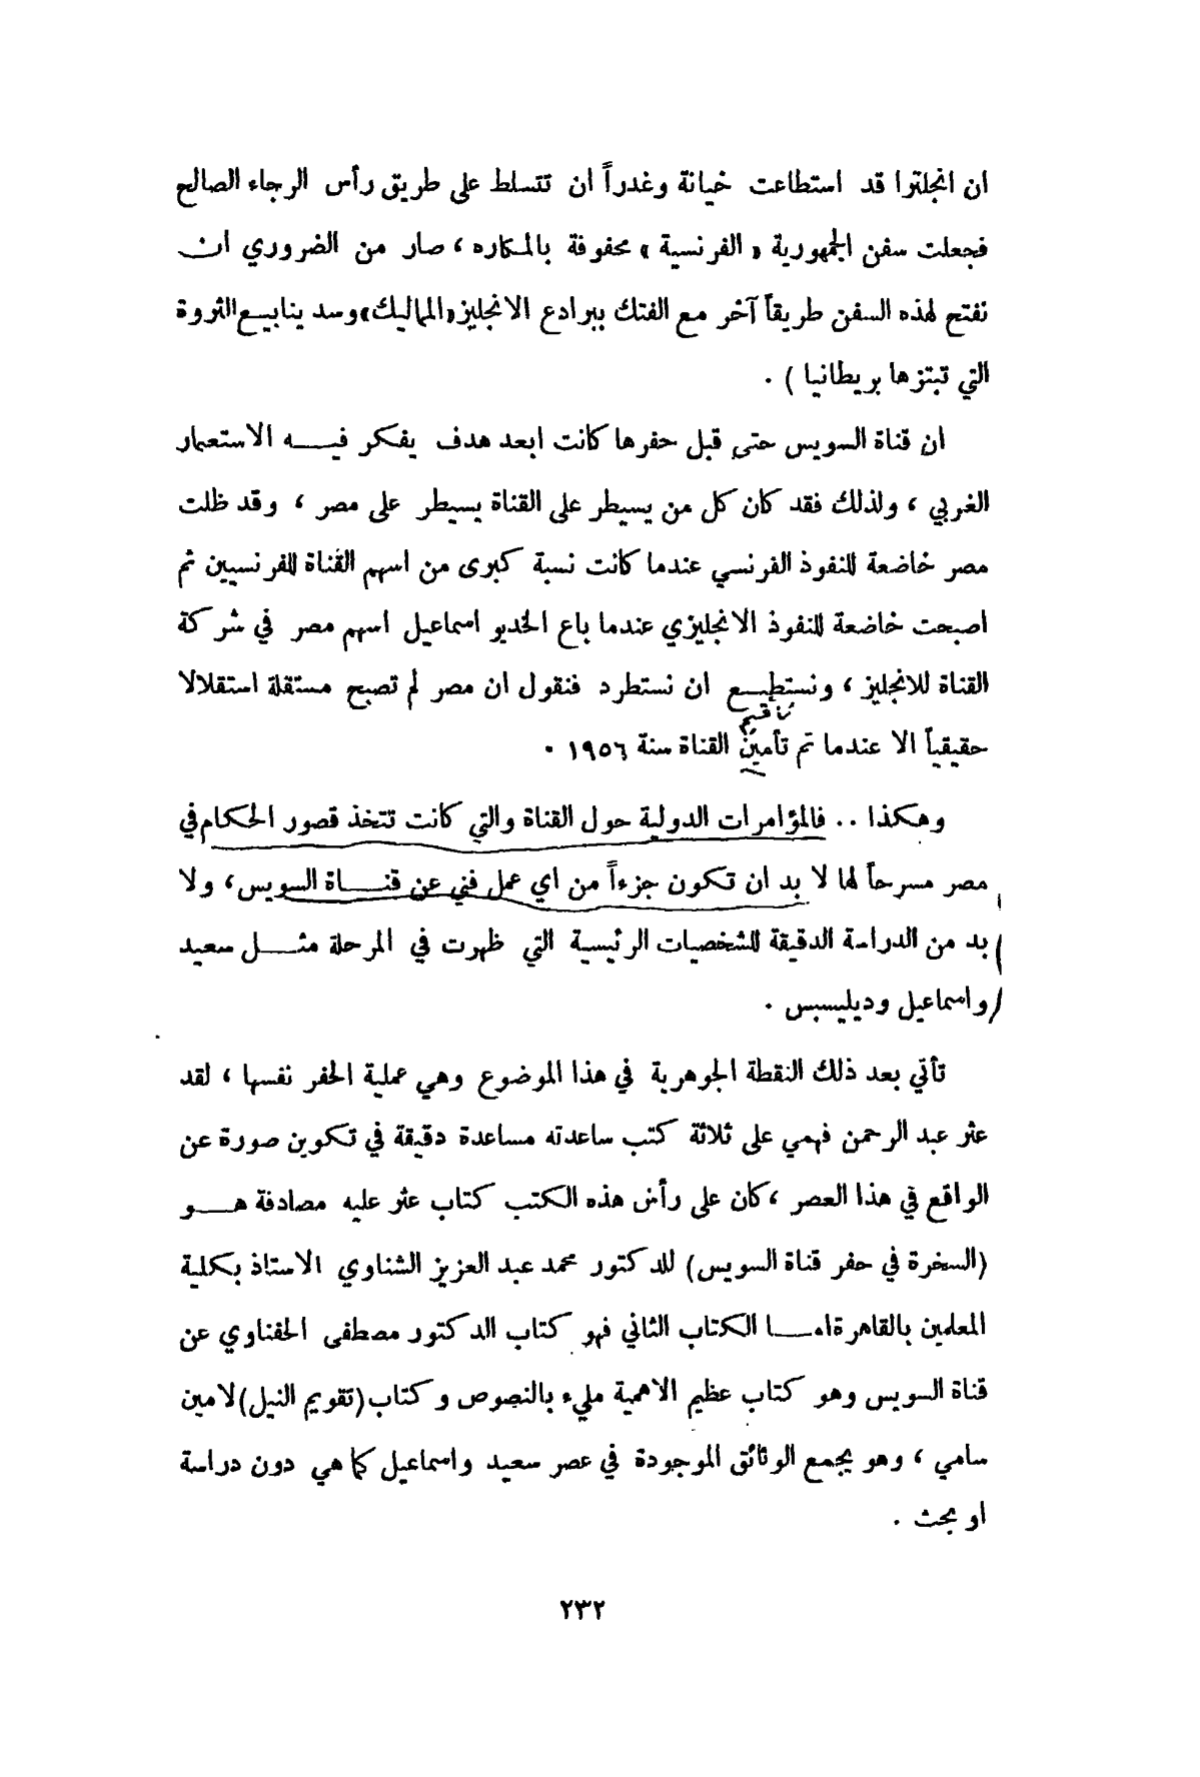 ان انجلترا قد استطاعت خيانة وغدراً ان تتسلط على طريق رأس الرجاء الصالح
فجعلت سفن الجمهورية « الفرنسية » محفوفة بالمكاره ، صار من الضروري ان
نفتح لهذه السفن طريقاً آخر مع الفتك ببرادع الانجليز «المماليك» وسد ينابيع الثروة
التي تبتزها بريطانيا ) .
ان قناة السويس حتى قبل حفرها كانت ابعد هدف يفكر فيه الاستعمار
الغربي ، ولذلك فقد كان كل من يسيطر على القناة يسيطر على مصر ، وقد ظلت
مصر خاضعة للنفوذ الفرنسي عندما كانت نسبة كبرى من اسهم القناة للفرنسيين ثم
اصبحت خاضعة للنفوذ الانجليزي عندما باع الخديو اسماعيل اسهم مصر في شركة
القناة للانجليز ، ونستطيع ان نستطرد فنقول ان مصر لم تصبح مستقلة استقلالا
تأقيم
حقيقياً الا عندما تم تأمين القناة سنة ١٩٥٦ .
وهكذا .. فالمؤامرات الدولية حول القناة والتي كانت تتخذ قصور الحكام في
مصر مسرحاً لها لا بد ان تكون جزءاً من اي عمل فني عن قناة السويس، ولا
بد من الدراسة الدقيقة للشخصيات الرئيسية التي ظهرت في المرحلة مثل سعيد
واسماعيل وديليسبس .
تأتي بعد ذلك النقطة الجوهرية في هذا الموضوع وهي عملية الحفر نفسها ، لقد
عثر عبد الرحمن فهمي على ثلاثة كتب ساعدته مساعدة دقيقة في تكوين صورة عن
الواقع في هذا العصر ، كان على رأس هذه الكتب كتاب عثر عليه مصادفة هو
(السخرة في حفر قناة السويس) للدكتور محمد عبد العزيز الشناوي الاستاذ بكلية
المعلمين بالقاهرة اما الكتاب الثاني فهو كتاب الدكتور مصطفى الحفناوي عن
قناة السويس وهو كتاب عظيم الاهمية مليء بالنصوص وكتاب (تقويم النيل) لامين
سامي ، وهو يجمع الوثائق الموجودة في عصر سعيد واسماعيل كما هي دون دراسة
او بحث .
٢٣٢